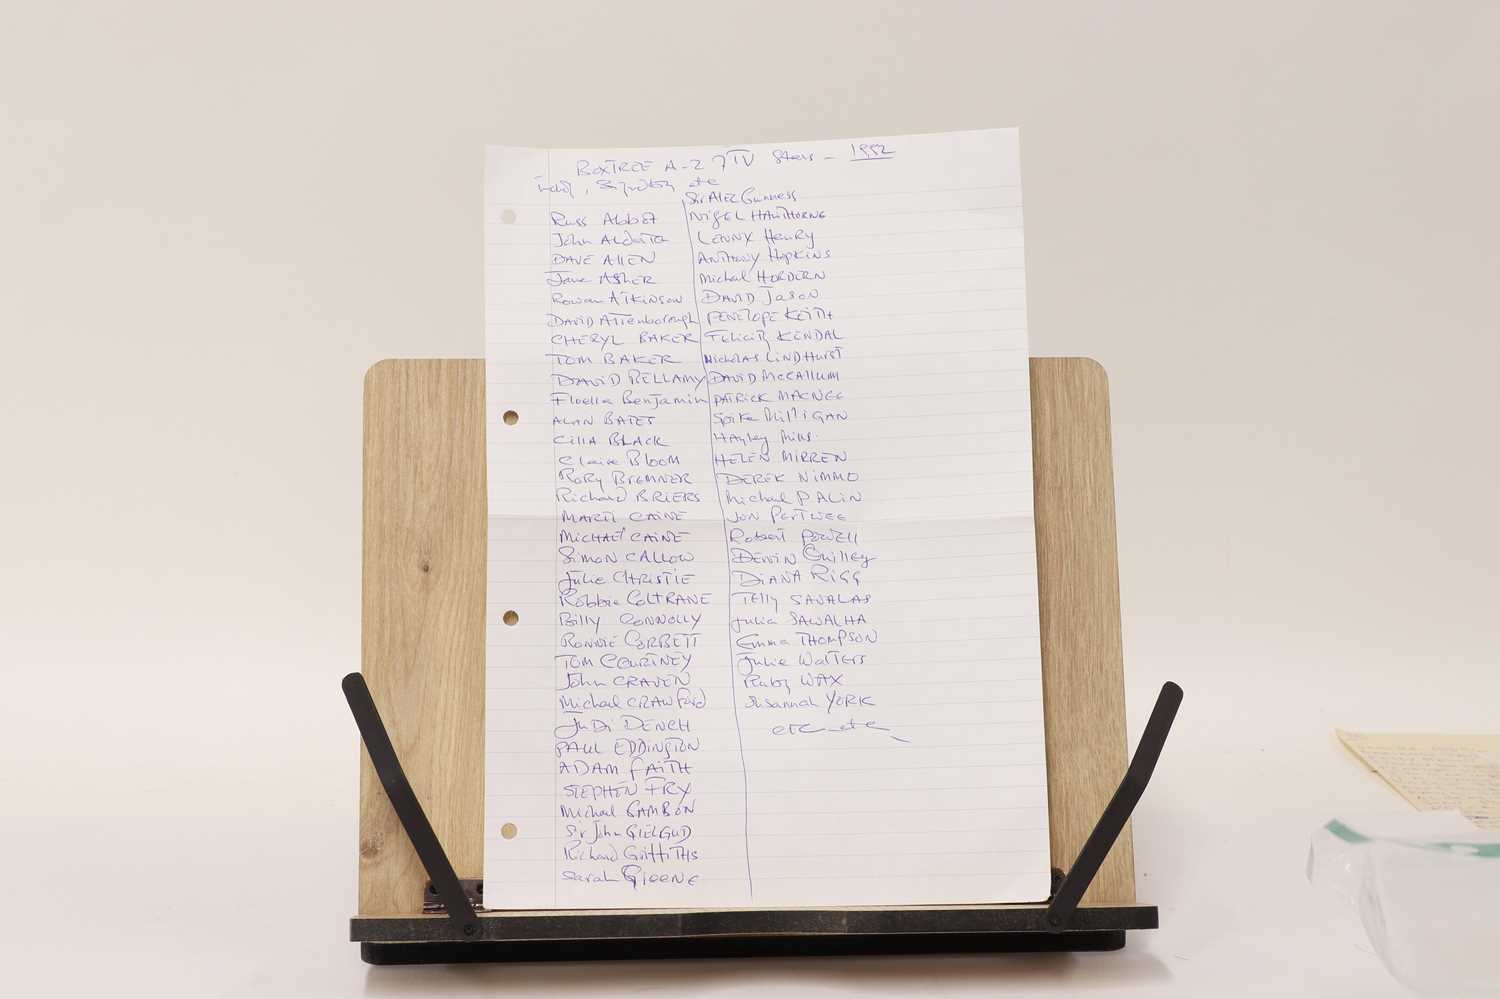 BOXTREE A-Z of TV Stars - 1992
includ, Signatures etc
Russ Abbot
John Alderton
DAVE AllEN
Jane ASHER
Rowan ATKiNSON
DAViD ATTenborough
CHERYL BAKER
TOM BAKER
DAViD BELLAMY
Floella Benjamin
ALAN BATES
CillA BLACK
Claire BLOOM
RORY BREMNER
Richard BRiERS
MARTI CAiNE
MiCHAEl CAiNE
SiMON CALLOW
Julie CHRiSTiE
Robbie COLTRANE
Billy CONNOLLY
RONNiE CORBETT
TOM COURTNEY
John CRAVEN
Michael CRAWford
JuDi DENCH
PAUL EDDiNgTON
ADAM fAiTH
STEPHEN FRY
Michael GAMBON
Sir John GiELGUD
Richard GriffiTHS
Sarah GreeNE
Sir ALEC Guinness
NigEL HAWTHORNE
LENNY HenRy
ANTHony HopKiNS
Michael HORDERN
DAViD JasoN
PENELOPE KEiTH
Felicity KENDAL
NicholAS LiNDHURST
DAViD McCAllUM
PATRiCK MACNEE
Spike MilliGAN
Hayley Mills.
HELEN MiRREN
DEREK NiMMO
Michael PALiN
JON PERTWEE
Robert POWEll
DENiN Quilley
DiANA RiGG
TElly SAVALAS
Julia SAWALHA
Emma THOMPSON
Julie WalTERS
Ruby WAX
Susannah YORK
etc etc